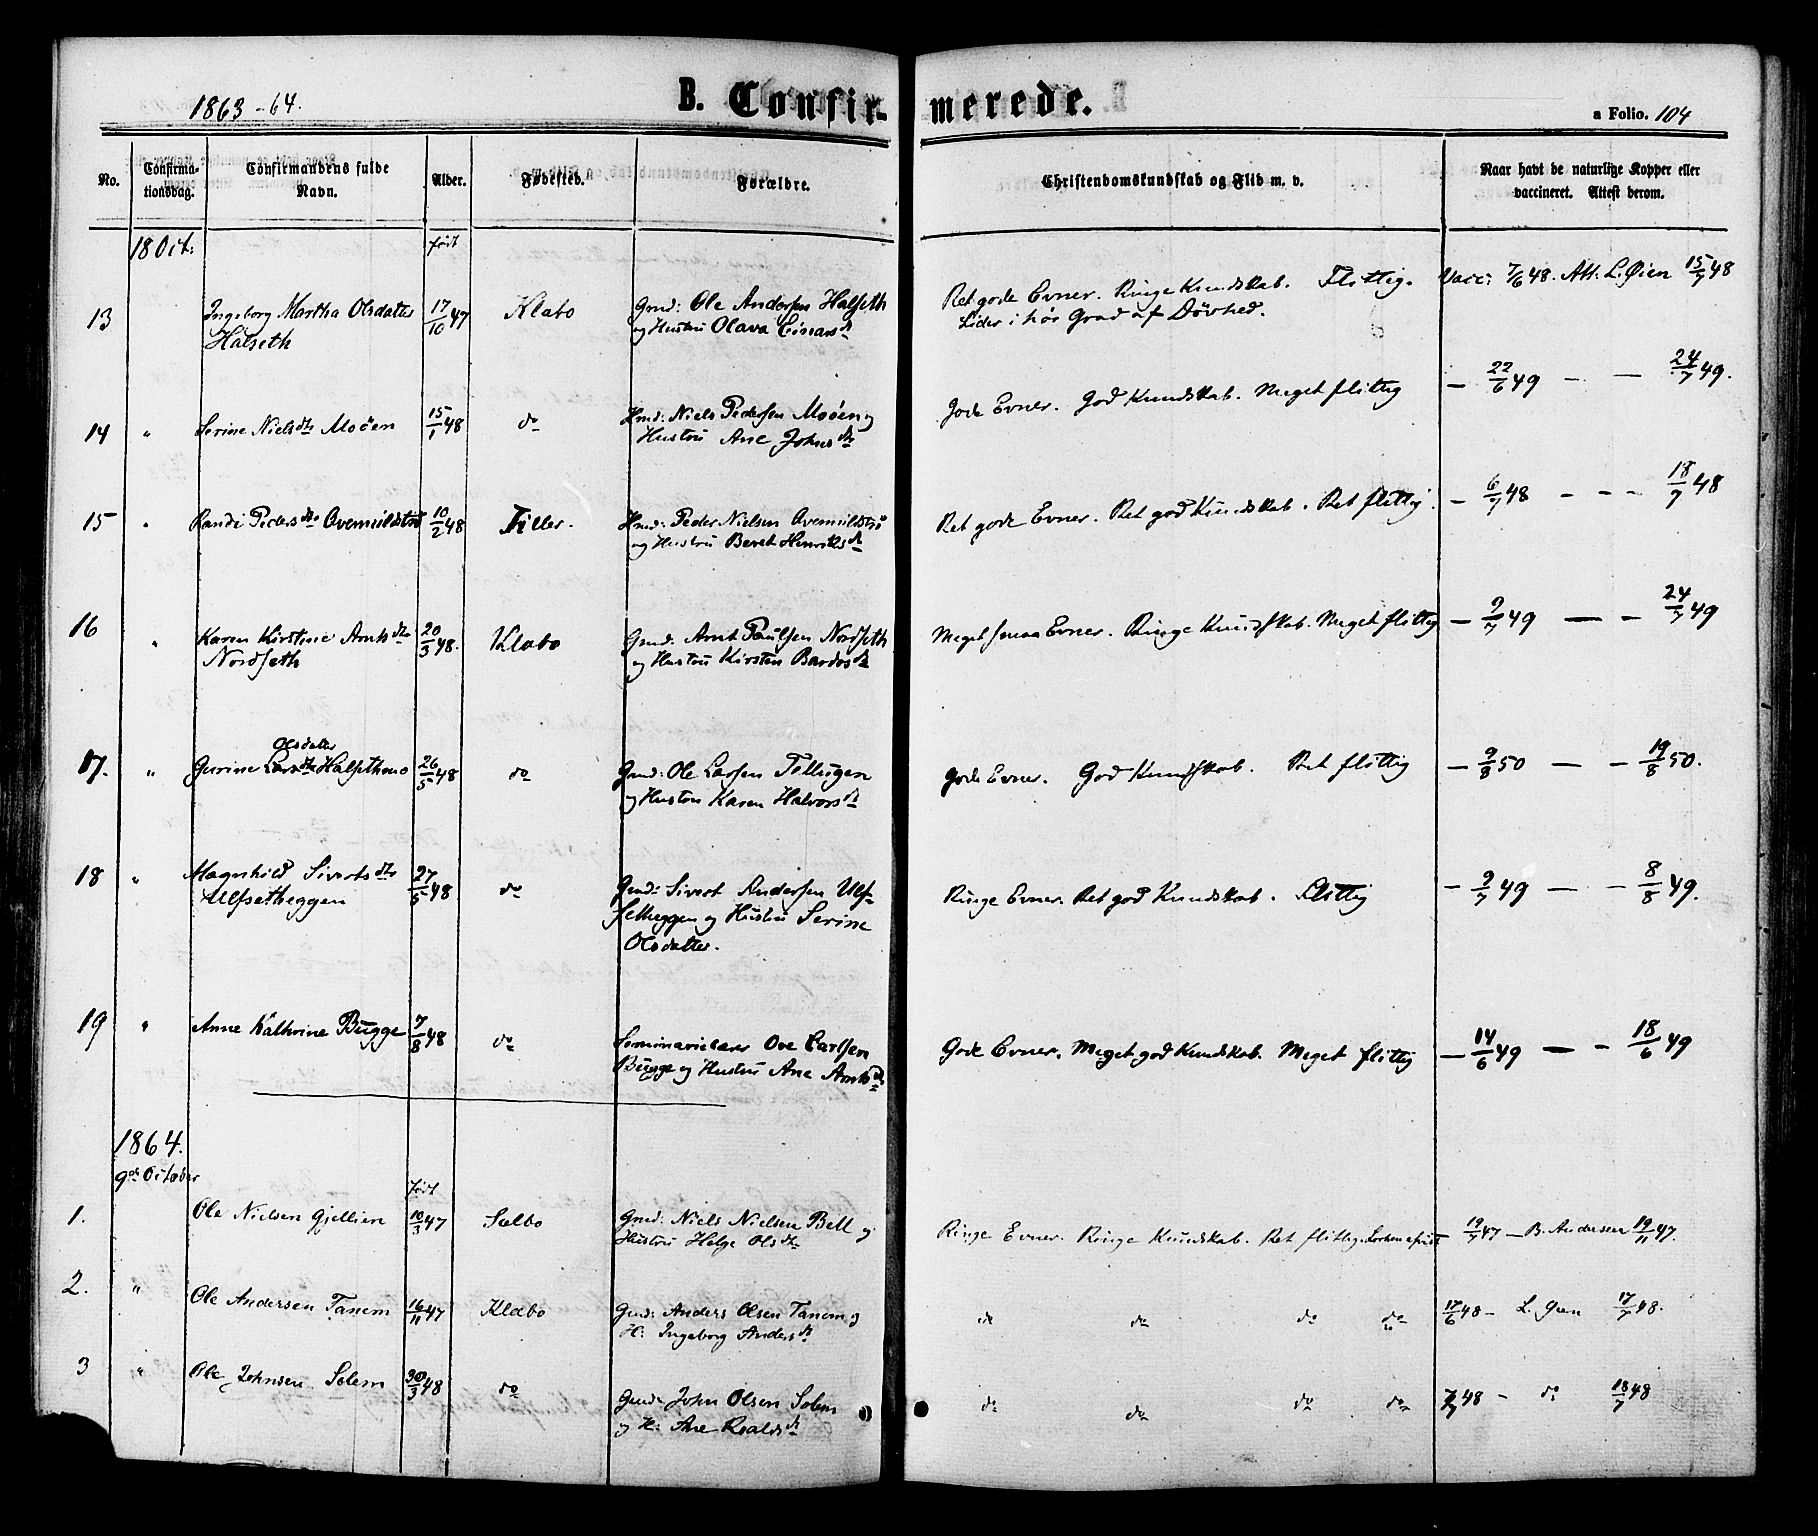 1863-64.
B. Confirmerede.
a Folio. 104
No.
Confirmationsdag.
Confirmandens fulde Navn.
Alder.
Fødested.
Forældre.
Christendomskundskab og Flid m. v.
Naar havt de naturlige Kopper eller vaccineret. Attest derom.
18 Oct:
født
13 Ingeborg Martha Olsdatter 17/10 47 Klæbo Gmd: Ole Andersen Halseth Ret gode Evner. Ringe Kundskab. Flittig. Vacc: 7/6 48. Att. L. Øien 15/7 48
Halseth og Hustru Olava Einarsdr Lider i høi Grad af Døvhed.
14 " Serine Nielsdtr Moöen 15/1 48 do Hmd: Niels Pedersen Moöen og Gode Evner. God Kundskab. Meget flittig — 22/6 49 — — 24/7 49.
Hustru Ane Johnsdr
15 " Randi Pedersdtr Avemuldstrø 10/2 48 Tiller. Hmd: Peder Nielsen Avemuldstrø Ret gode Evner. Ret god Kundskab. Ret flittig. — 6/7 48 - - - 18/7 48
og Hustru Beret Henriksdr
16 " Karen Kirstine Arntsdtr 20/3 48. Klæbo Gmd: Arnt Paulsen Nordseth Meget smaa Evner. Ringe Kundskab. Meget flittig — 9/7 49 — - 24/7 49
Nordseth og Hustru Kirsten Bardosdr
Olsdatter
17. " Gurine Larsdtr Halsethmo 26/5 48 do Gmd: Ole Larsen Tellugen Gode Evner. God Kundskab. Ret flittig — 9/8 50 — - 19/8 50.
og Hustru Karen Halvorsdr
18 " Magnhild Sivertsdtr 27/5 48 do Gmd: Sivert Andersen Ulf- Ringe Evner. Ret god Kundskab. Flittig — 9/7 49 — - 8/8 49.
Ulfsetheggen setheggen og Hustru Serine
Olsdatter.
19 " Anne Kathrine Bugge 7/8 48 do Seminarielærer Ove Carlsen Gode Evner. Meget god Kundskab. Meget flittig — 14/6 49 — - 18/6 49
Bugge og Hustru Ane Arntsdr
1864.
9de October
født
1. Ole Nielsen Gjellien 10/3 47 Sælbo Gmd: Niels Nielsen Bell og Ringe Evner. Ringe Kundskab. Ret flittig. — 19/7 47 — B. Andersen 19/11 47.
Hustru Helge Olsdtr
2. " Ole Andersen Tanem 16/11 47 Klæbo Gmd: Anders Olsen Tanem og do do do do 17/6 48 - L. Øien 17/7 48.
H: Ingeborg Andersdr
3 " Ole Johnsen Solem 30/3 48 do Gmd: John Olsen Solem do do do do 7/7 48 - do 18/7 48
og H: Ane Roaldsdr